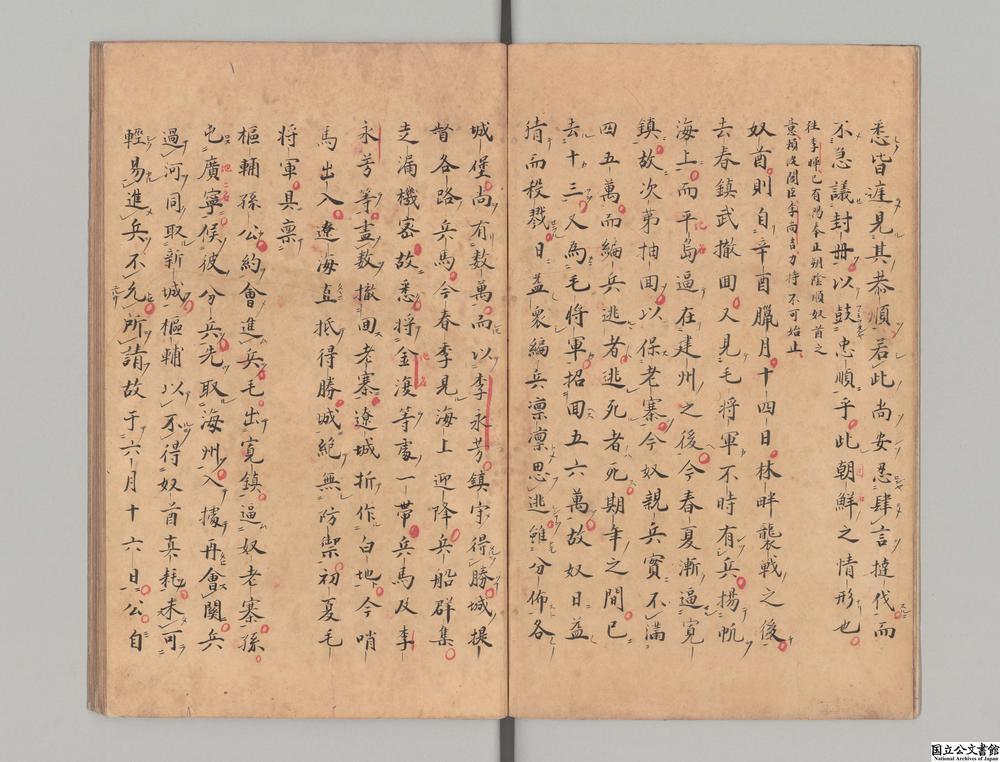 悉皆涯見其恭順若此尚安忍肆言撻伐而
不急議封冊以鼓忠順乎此朝鮮之情形也
往李暉已有陽奉正朔陰順奴首之
意頼沒閣臣李尚吉力持不可始止
奴酋則自辛酉臘月十四日林畔襲戰之後
去春鎮武撤回又見毛將軍不時有兵揚帆
海上而平島逼在建州之後今春夏漸逼寬
鎮故次第抽回以保老寨今奴親兵實不滿
四五萬而編兵逃者逃死者死期年之間已
去十三又為毛將軍招回五六萬故奴日益
猜而殺戮日益眾編兵凛凛思逃雖分佈各
城堡尚有數萬而以李永芳鎮守得勝城提
督各路兵馬今春季見海上迎降兵船群集
走漏機密故悉將金復等處一帶兵馬及李
永芳等盡數撤回老寨遼城折作白地今哨
馬出入遼海直抵得勝城絕無防禦初夏毛
將軍具稟
樞輔孫公約會進兵毛出寬鎮逼奴老寨孫
屯廣寧候彼分兵先取海州入據再會關兵
過河同取新城樞輔以不得奴酋真耗未可
輕易進兵不允所請故于六月十六日公自
国立公文書館
National Archives of Japan